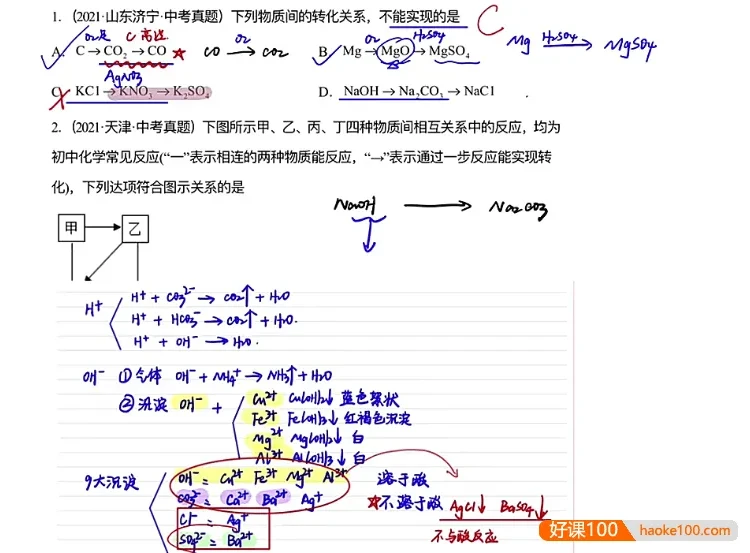 1. (2021·山东济宁·中考真题) 下列物质间的转化关系，不能实现的是 C
O₂足 C 高温
A. C→CO₂→CO ★ CO —O₂→ CO₂
O₂ H₂SO₄
B. Mg→MgO→MgSO₄ Mg —H₂SO₄→ MgSO₄
AgNO₃
C. KCl→KNO₃→K₂SO₄
D. NaOH→Na₂CO₃→NaCl
2. (2021·天津·中考真题) 下图所示甲、乙、丙、丁四种物质间相互关系中的反应，均为
初中化学常见反应(“一”表示相连的两种物质能反应，“→”表示通过一步反应能实现转
化)，下列选项符合图示关系的是
NaOH → Na₂CO₃
甲 → 乙
H⁺
H⁺ + CO₃²⁻ → CO₂↑ + H₂O
H⁺ + HCO₃⁻ → CO₂↑ + H₂O.
H⁺ + OH⁻ → H₂O.
OH⁻ ①气体 OH⁻ + NH₄⁺ → NH₃↑ + H₂O
②沉淀 OH⁻ +
Cu²⁺ Cu(OH)₂↓ 蓝色絮状
Fe³⁺ Fe(OH)₃↓ 红褐色沉淀
Mg²⁺ Mg(OH)₂↓ 白
Al³⁺ Al(OH)₃↓ 白
9大沉淀
OH⁻ = Cu²⁺ Fe³⁺ Mg²⁺ Al³⁺ 溶于酸
CO₃²⁻ = Ca²⁺ Ba²⁺ Ag⁺ ★不溶于酸 AgCl↓ BaSO₄↓
Cl⁻ = Ag⁺
SO₄²⁻ = Ba²⁺ 不与酸反应
好课100 haoke100.com